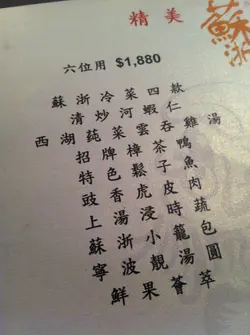 精美
蘇浙
六位用 $1,880
蘇浙冷菜四款
清炒河蝦仁
西湖莼菜雲吞雞湯
招牌樟茶鴨
特色鬆子魚
豉香虎皮肉
上湯浸時蔬
蘇浙小籠包
寧波靚湯圓
鮮果薈萃